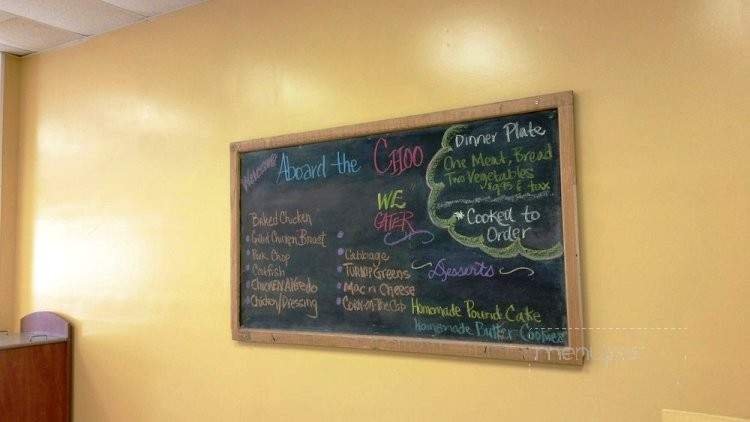 Welcome Aboard the CHOO
Dinner Plate
One Meat, Bread
Two Vegetables
$9.95 & tax
* Cooked to
Order
WE
CATER
Baked Chicken
Grilled Chicken Breast
Pork Chop
Catfish
CHICKEN Alfredo
Chicken/Dressing
Cabbage
TURNIP Greens
Mac n Cheese
Corn-on-The-Cob
Desserts
Homemade Pound Cake
Homemade Butter Cookies